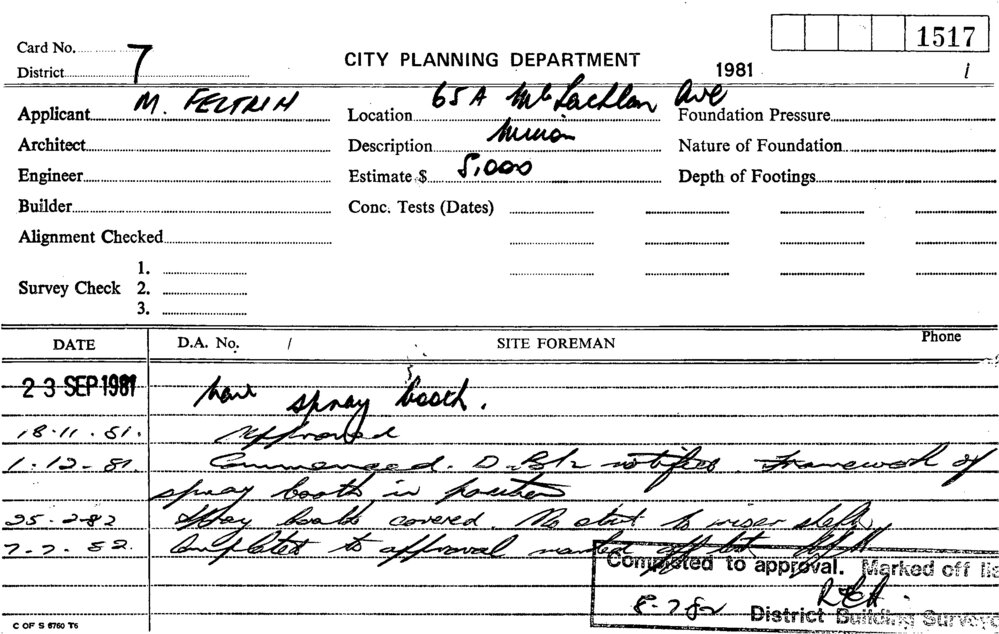 1517
Card No. 7
CITY PLANNING DEPARTMENT
District
1981 /
Applicant M. FELTRIN Location 65A McLachlan Ave Foundation Pressure
Architect Description Minor Nature of Foundation
Engineer Estimate $ 5,000 Depth of Footings
Builder Conc. Tests (Dates)
Alignment Checked
1.
Survey Check 2.
3.
DATE D.A. No. / SITE FOREMAN Phone
23 SEP 1981 New spray booth.
18.11.81. Approved
1.12.81. Commenced. notified. Framework of
spray booth in position
25.2.82 Spray booth covered. No start to
7.7.82. Completed to approval marked off list
Completed to approval. Marked off lis
8.7.82 District Building Surveyo
C OF S 6760 T6